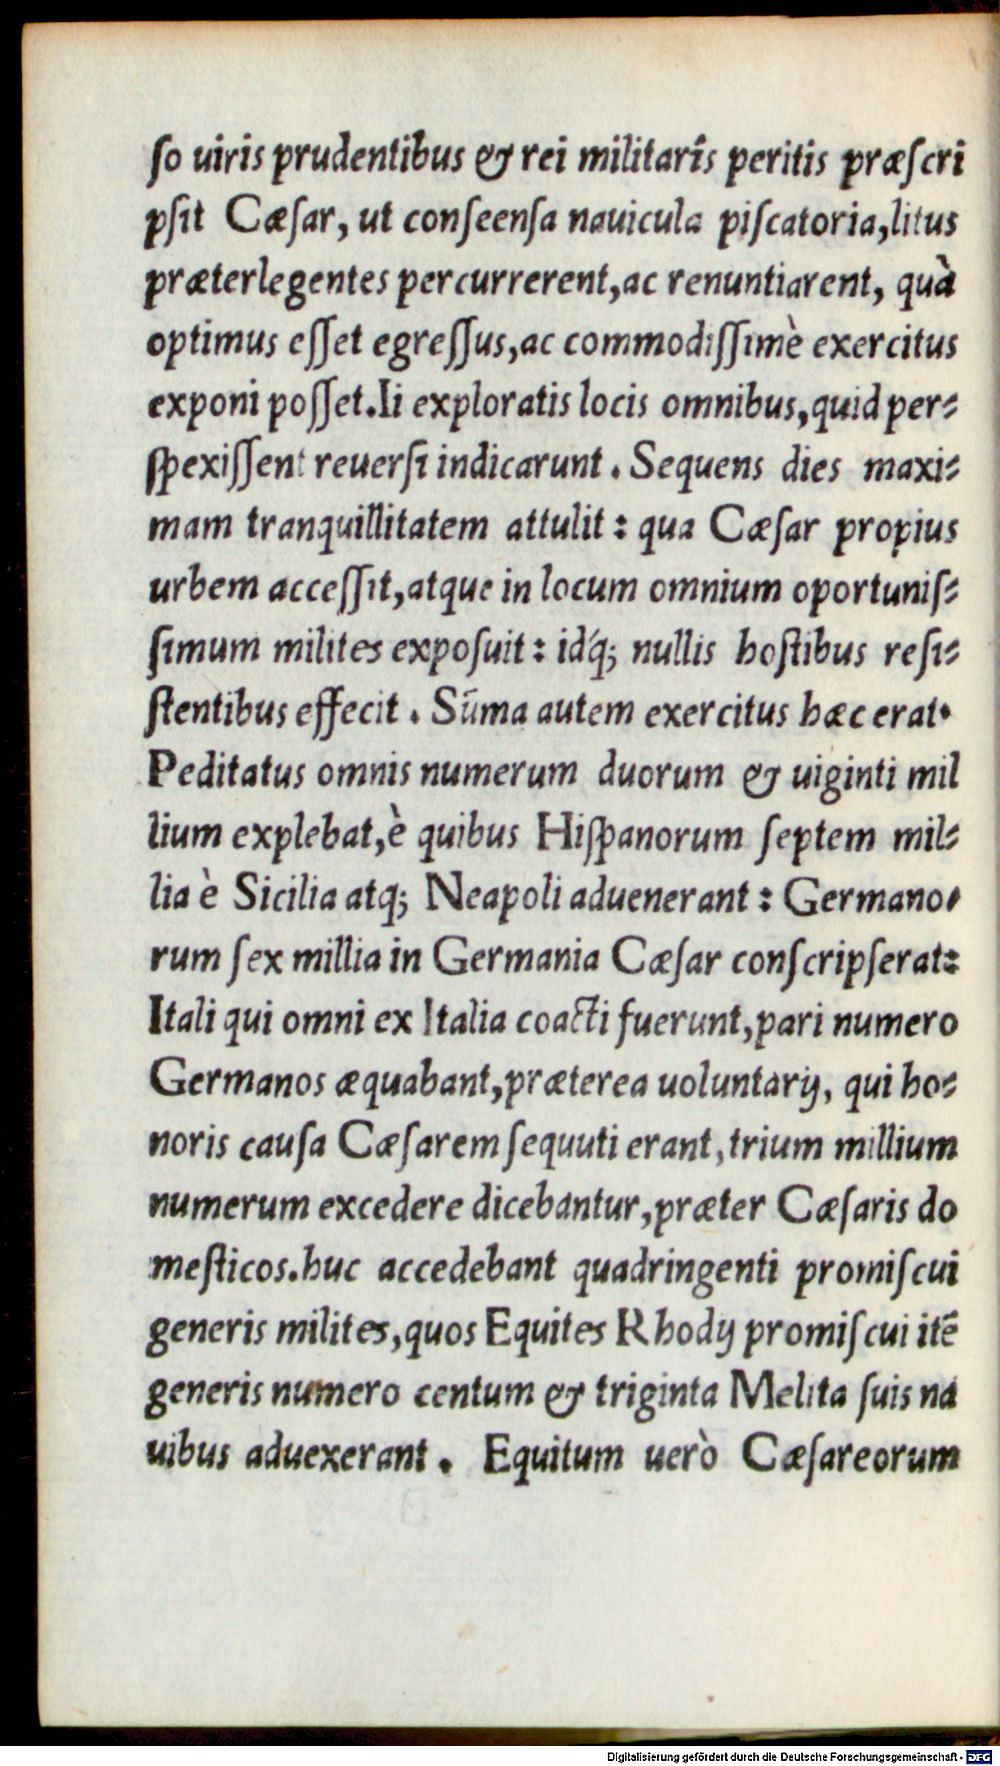 ſo uiris prudentibus & rei militaris peritis præſcri
pſit Cæſar, ut conſeenſa nauicula piſcatoria, litus
præterlegentes percurrerent, ac renuntiarent, quà
optimus eſſet egreſſus, ac commodiſſimè exercitus
exponi poſſet. Ii exploratis locis omnibus, quid per-
ſpexiſſent reuerſi indicarunt. Sequens dies maxi-
mam tranquillitatem attulit: qua Cæſar propius
urbem acceſſit, atque in locum omnium oportuniſ-
ſimum milites expoſuit: idq́; nullis hoſtibus reſi-
ſtentibus effecit. Sūma autem exercitus hæc erat.
Peditatus omnis numerum duorum & uiginti mil
lium explebat, è quibus Hiſpanorum ſeptem mil-
lia è Sicilia atq; Neapoli aduenerant: Germano-
rum ſex millia in Germania Cæſar conſcripſerat:
Itali qui omni ex Italia coacti fuerunt, pari numero
Germanos æquabant, præterea uoluntarij, qui ho-
noris cauſa Cæſarem ſequuti erant, trium millium
numerum excedere dicebantur, præter Cæſaris do
meſticos. huc accedebant quadringenti promiſcui
generis milites, quos Equites Rhodij promiſcui itē
generis numero centum & triginta Melita ſuis na
uibus aduexerant. Equitum uerò Cæſareorum
Digitalisierung gefördert durch die Deutsche Forschungsgemeinschaft - DFG